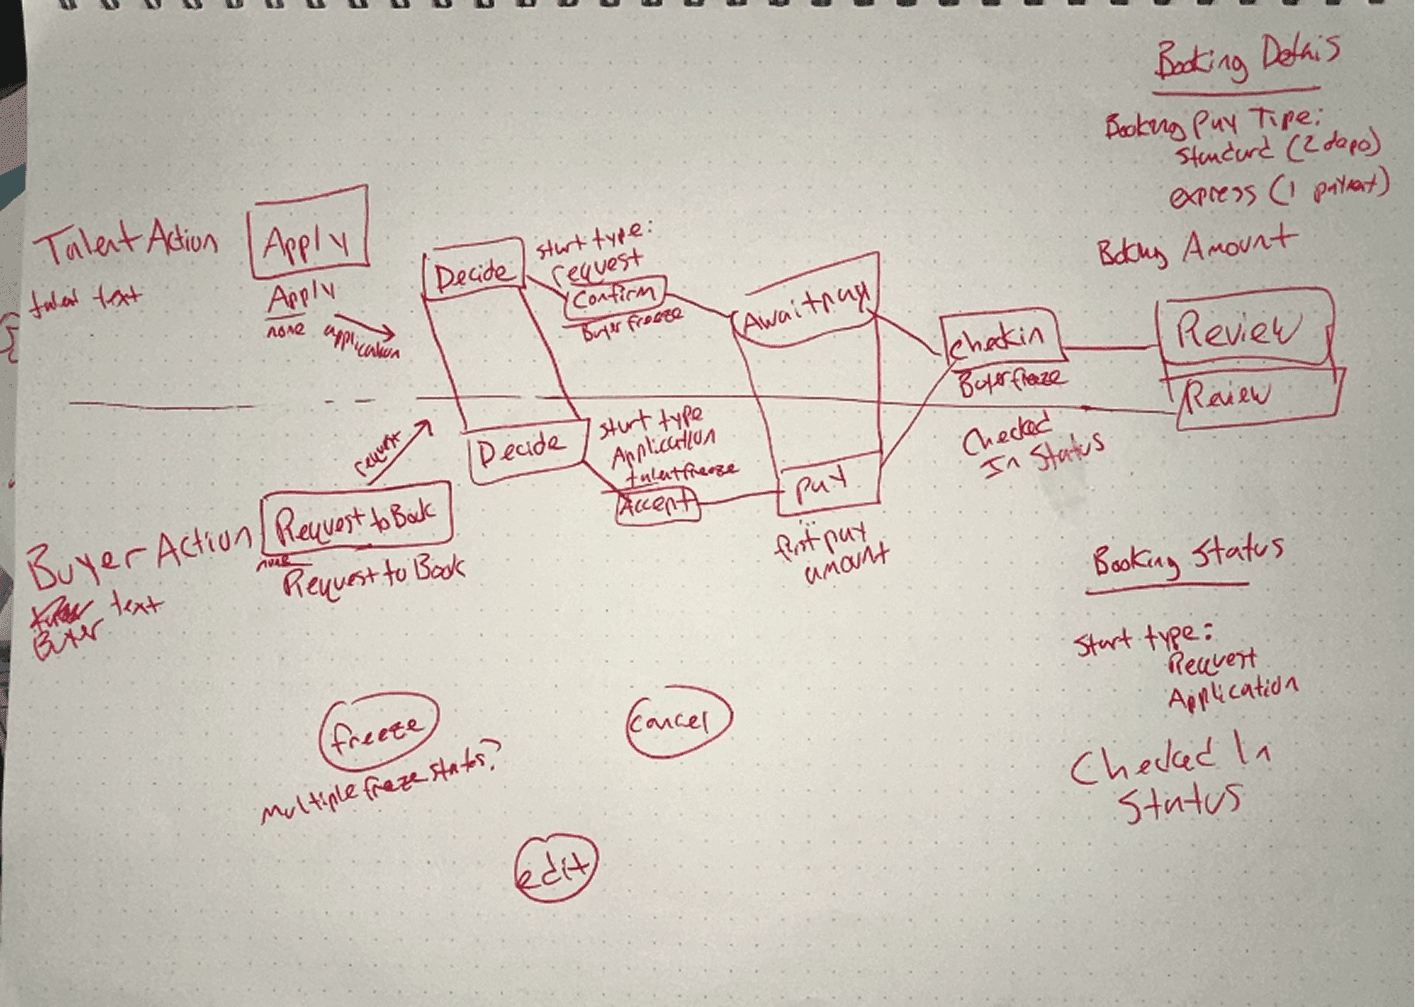 Booking Details
Booking Pay Type:
Standard (2 days)
express (1 payment)
Booking Amount
Talent Action
talent text
Apply
Apply
none
application
Decide
start type:
request
Confirm
Buyer freeze
Await pay
Checkin
Buyer freeze
Review
Review
Checked
In Status
request
Decide
start type
Application
talent freeze
Accept
pay
first pay
amount
Buyer Action
Buyer text
Request to Book
none
Request to Book
Booking Status
Start type:
Request
Application
Checked In
Status
freeze
multiple freeze status?
cancel
edit